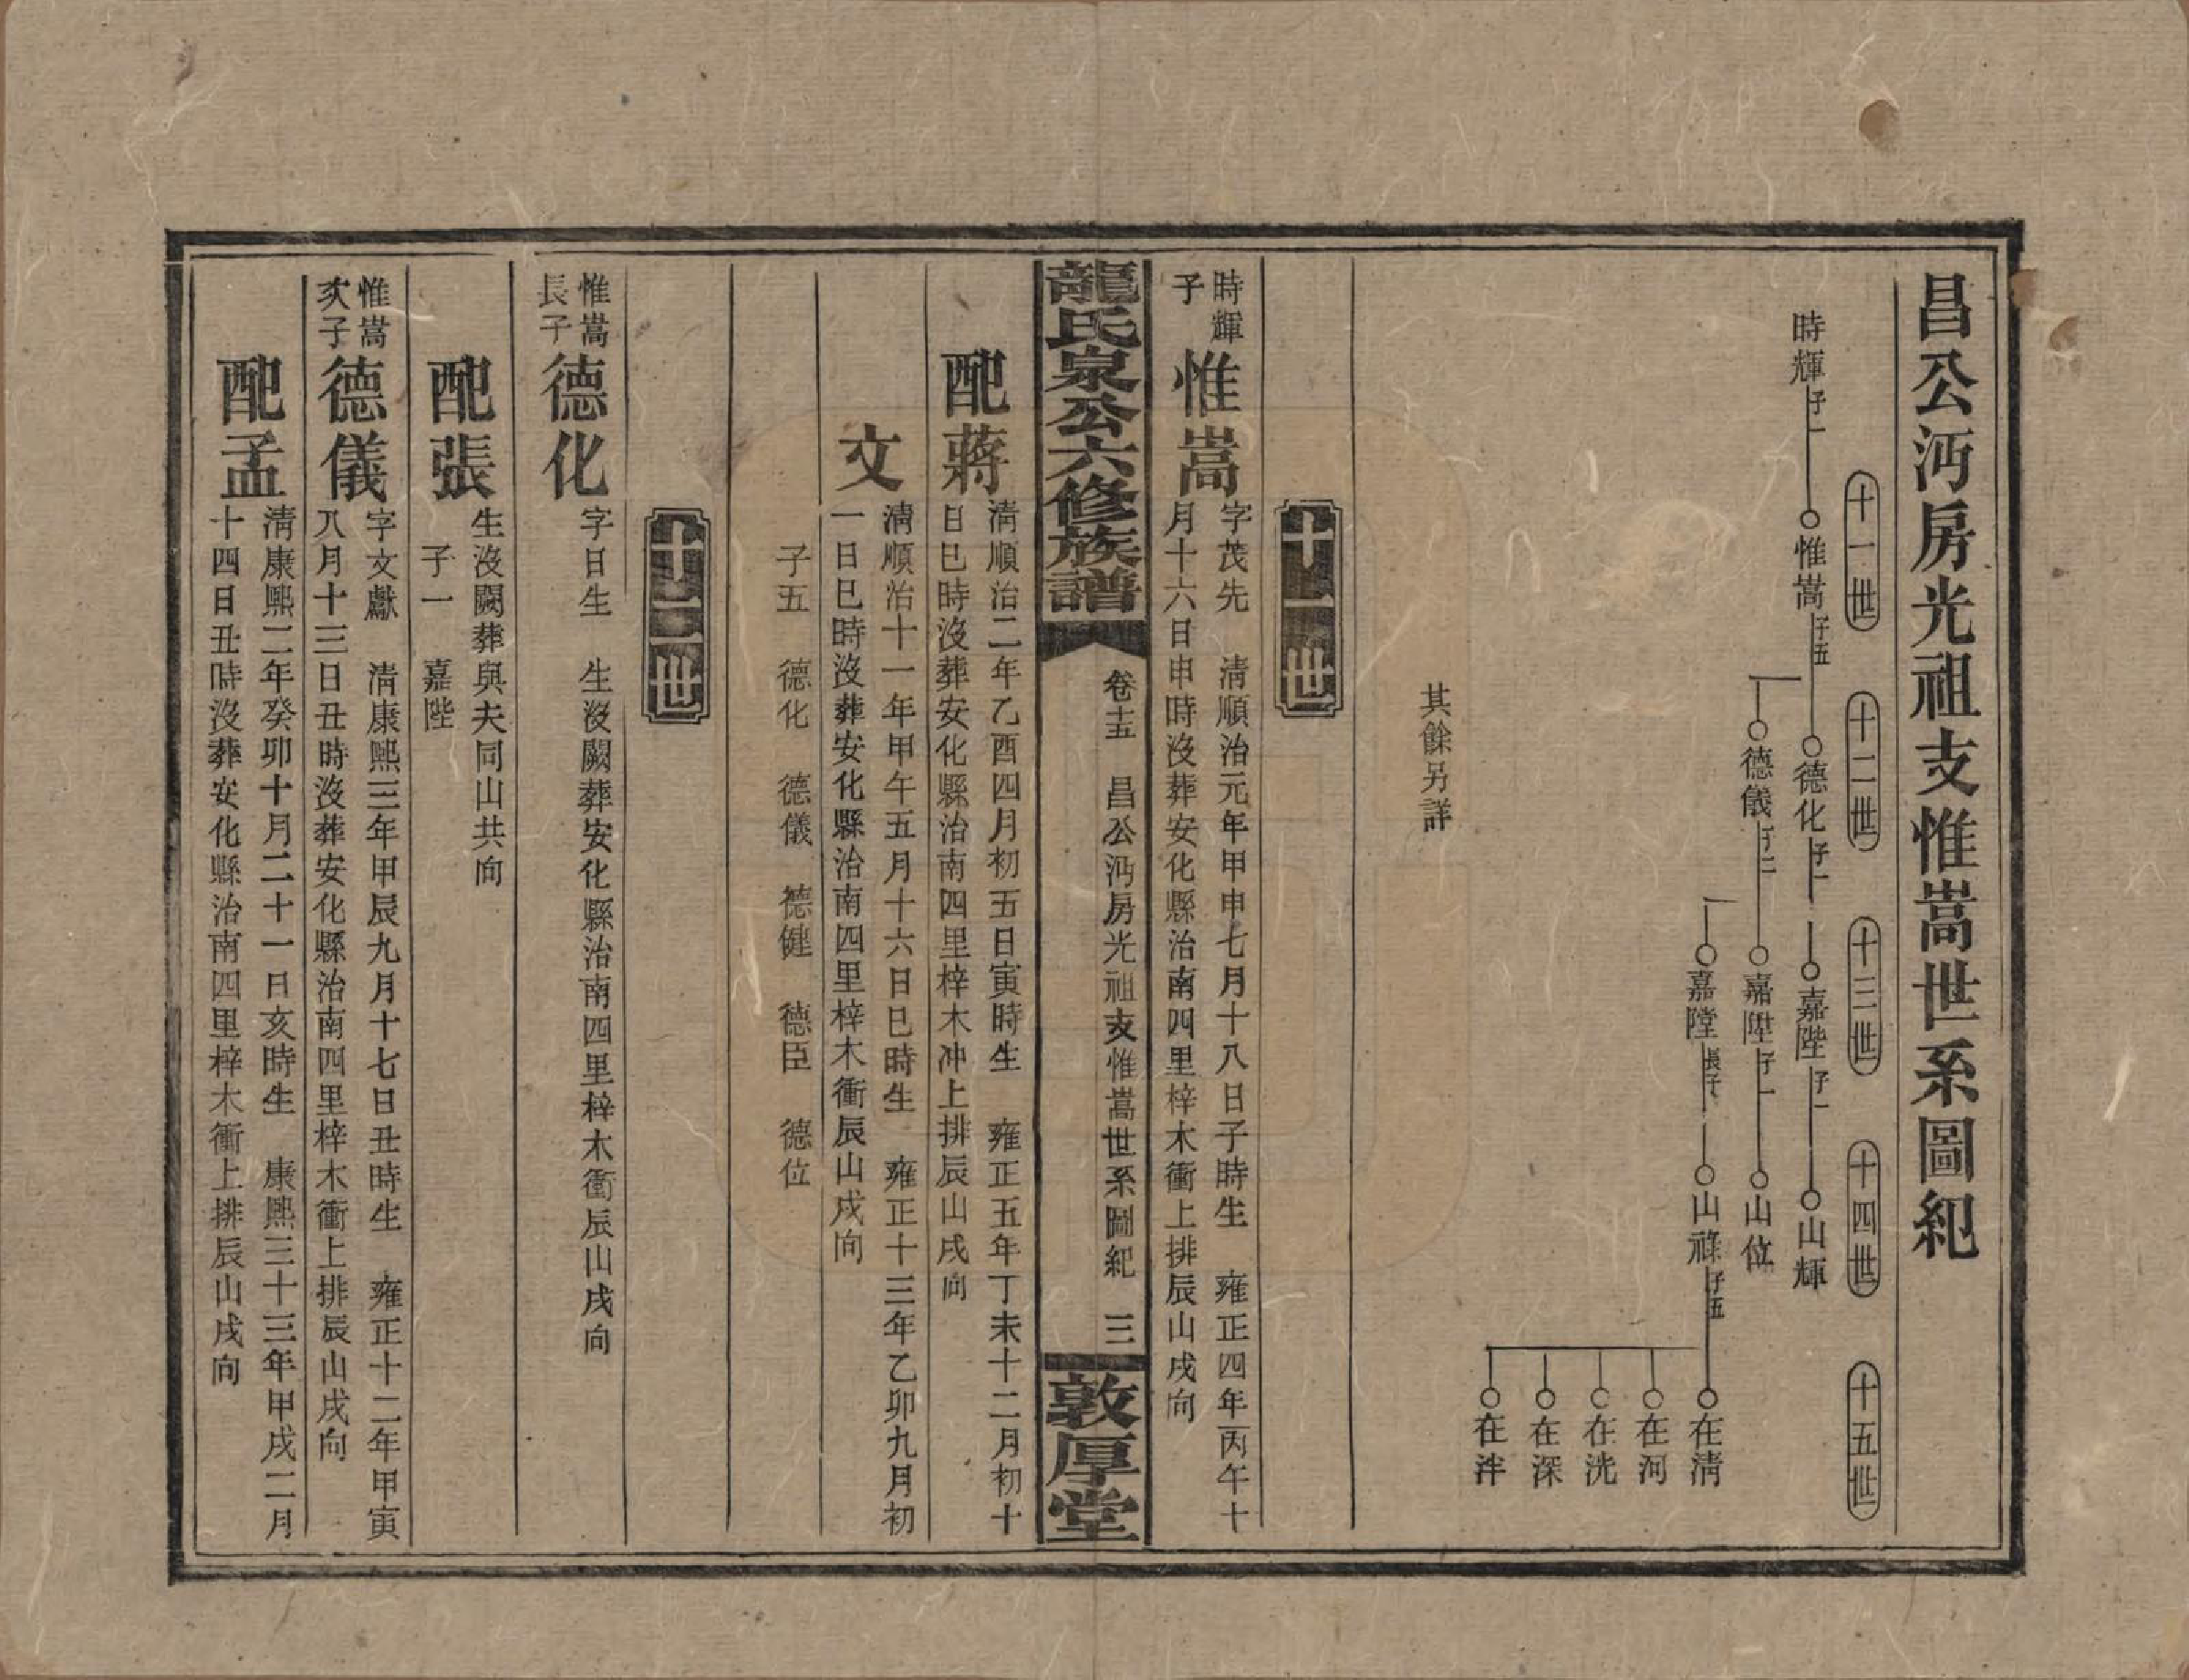 昌公沔房光祖支惟嵩世系圖紀
十一世
十二世
十三世
十四世
十五世
時輝 子一
惟嵩 子五
德化 子一
嘉陛 子一
山輝
德儀 子二
嘉陞 子一
山位
嘉隚 長子
山祿 子五
在清
在河
在洸
在深
在泮
其餘另詳
十一世
時輝
子
惟嵩
字茂先 清順治元年甲申七月十八日子時生 雍正四年丙午十
月十六日申時沒葬安化縣治南四里梓木衝上排辰山戌向
龍氏泉公六修族譜
卷十五 昌公沔房光祖支惟嵩世系圖紀 三
敦厚堂
配蔣
清順治二年乙酉四月初五日寅時生 雍正五年丁未十二月初十
日巳時沒葬安化縣治南四里梓木冲上排辰山戌向
文
清順治十一年甲午五月十六日巳時生 雍正十三年乙卯九月初
一日巳時沒葬安化縣治南四里梓木衝辰山戌向
子五 德化 德儀 德健 德臣 德位
十二世
惟嵩
長子
德化
字日生 生沒闕葬安化縣治南四里梓木衝辰山戌向
配張
生沒闕葬與夫同山共向
子一 嘉陛
惟嵩
次子
德儀
字文獻 清康熙三年甲辰九月十七日丑時生 雍正十二年甲寅
八月十三日丑時沒葬安化縣治南四里梓木衝上排辰山戌向
配孟
清康熙二年癸卯十月二十一日亥時生 康熙三十三年甲戌二月
十四日丑時沒葬安化縣治南四里梓木衝上排辰山戌向